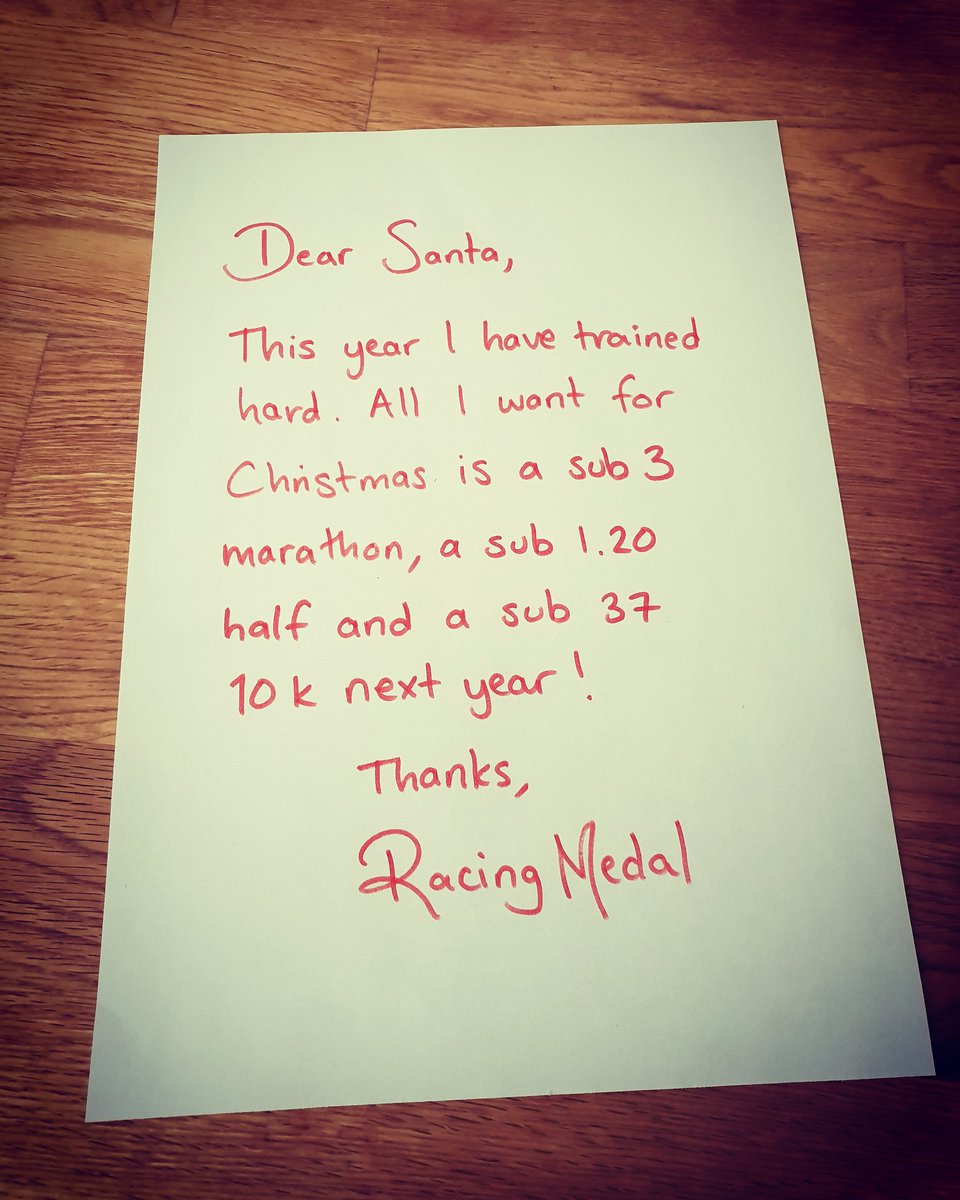 Dear Santa,
This year I have trained
hard. All I want for
Christmas is a sub 3
marathon, a sub 1.20
half and a sub 37
10k next year!
Thanks,
Racing Medal